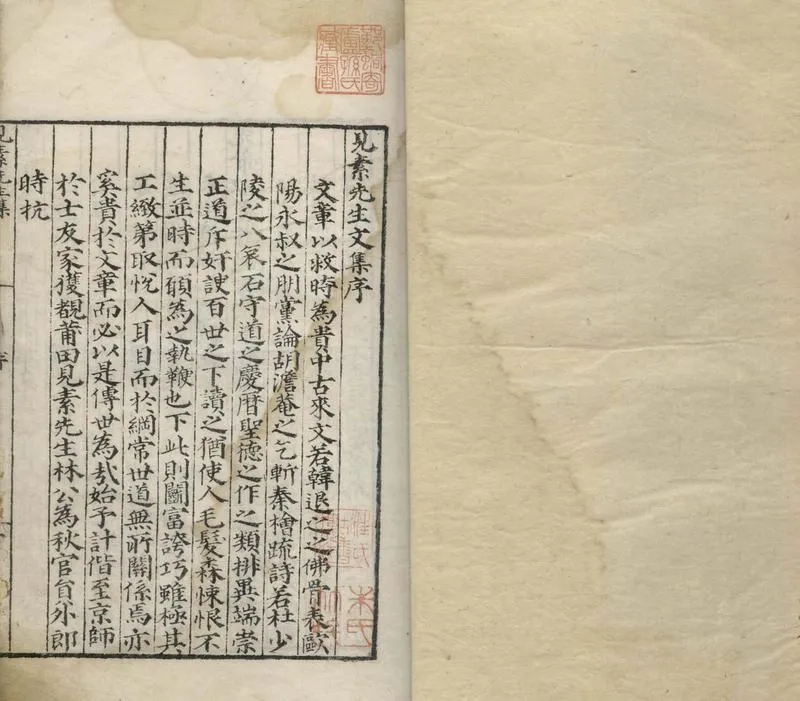 見素先生文集序
文章以救時為貴中古來文若韓退之之佛骨表歐
陽永叔之朋黨論胡澹菴之乞斬秦檜疏詩若杜少
陵之八哀石守道之慶曆聖德之作之類排異端崇
正道斥奸諛百世之下讀之猶使人毛髮森悚恨不
生並時而願為之執鞭也下此則鬭富誇巧雖極其
工緻第取悅人耳目而於綱常世道無所關係焉亦
奚貴於文章而必以是傳世為哉始予計偕至京師
於士友家獲覩莆田見素先生林公為秋官員外郎
時抗
見素先生集
序